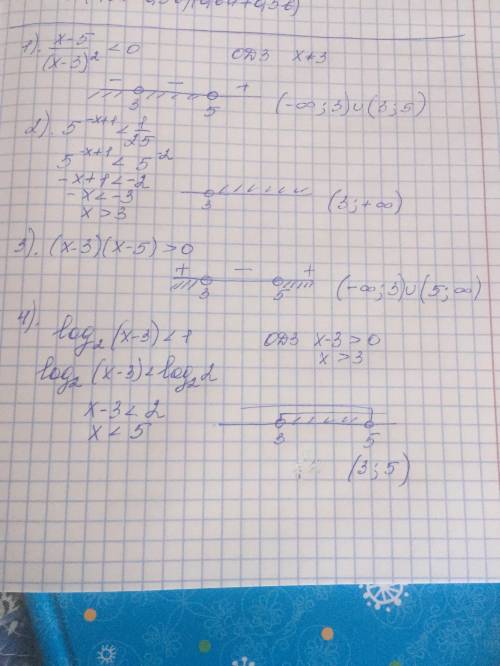 1). (x-5)/(x-3)² < 0   ОДЗ x≠3
- - +
3 5 (-∞; 3)∪(3; 5)
2). 5^(-x+1) < 1/25
5^(-x+1) < 5^(-2)
-x+1 < -2
-x < -3
x > 3
3 (3; +∞)
3). (x-3)(x-5) > 0
+ - +
3 5 (-∞; 3)∪(5; ∞)
4). log₂(x-3) < 1   ОДЗ x-3 > 0
x > 3
log₂(x-3) < log₂2
x-3 < 2
x < 5
3 5
(3; 5)